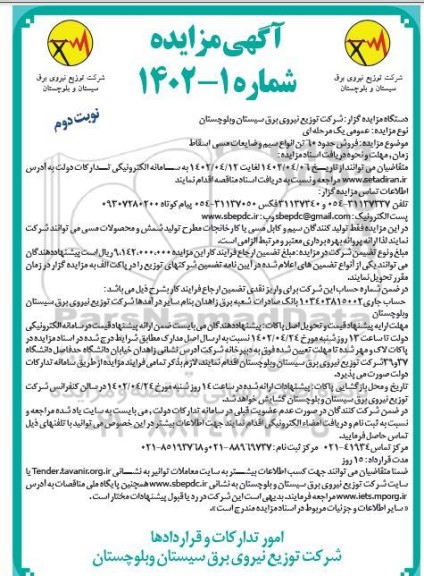 آگهی مزایده
شماره ۱-۱۴۰۲
شرکت توزیع نیروی برق
سیستان و بلوچستان
شرکت توزیع نیروی برق
سیستان و بلوچستان
نوبت دوم
دستگاه مزایده گزار: شرکت توزیع نیروی برق سیستان وبلوچستان
نوع مزایده: عمومی یک مرحله ای
موضوع مزایده: فروش حدود ۶۰ تن انواع سیم و ضایعات مسی اسقاط
زمان، مهلت و نحوه دریافت اسناد مزایده:
متقاضیان می توانند از تاریخ ۱۴۰۲/۰۴/۰۶ لغایت ۱۴۰۲/۰۴/۱۲ به سامانه الکترونیکی تدارکات دولت به آدرس
www.setadiran.ir مراجعه و نسبت به دریافت اسناد مناقصه اقدام نمایند
اطلاعات تماس مزایده گزار:
تلفن ۳۱۱۳۷۳۳۷-۰۵۴ و ۳۱۱۳۷۳۴۰-۰۵۴ فکس ۳۱۱۳۷۰۵۰-۰۵۴ پیام کوتاه ۰۹۳۰۷۲۸۰۲۰۰
پست الکترونیک: sbepdc@gmail.com وب: www.sbepdc.ir
در این مزایده فقط تولید کنندگان سیم و کابل مسی یا کارخانجات مطرح تولید شمش و محصولات مسی می توانند شرکت
نمایند لذا ارائه پروانه بهره برداری معتبر و مرتبط الزامی است.
مبلغ و نوع تضمین شرکت در مزایده: مبلغ تضمین ارجاع فرایند کار این مزایده ۶،۱۴۲،۰۰۰،۰۰۰ ریال است پیشنهاددهندگان
می توانند یکی از انواع تضمین های اعلام شده در آیین نامه تضمین شرکتهای توزیع را در پاکت الف به مزایده گزار در زمان
مقرر تحویل نمایند.
در ضمن شماره حساب این شرکت برای واریز نقدی تضمین ارجاع فرایند کار بشرح ذیل می باشد:
حساب جاری ۰۱۰۳۴۰۳۸۱۵۰۰۲ بانک صادرات شعبه برق زاهدان بنام سایر درآمدها شرکت توزیع نیروی برق سیستان
وبلوچستان
مهلت ارایه پیشنهاد قیمت و تحویل اصل پاکات: پیشنهاددهندگان می بایست ضمن ارائه پیشنهاد قیمت در سامانه الکترونیکی
دولت تا ساعت ۱۳ روز شنبه مورخ ۱۴۰۲/۰۴/۲۴ نسبت به ارسال اصل مدارک مطابق شرایط درج شده در اسناد مزایده در
پاکات لاک و مهر شده تا مهلت تعیین شده فوق به دبیرخانه شرکت آدرس نشانی زاهدان خیابان دانشگاه حدفاصل دانشگاه
۳۷و۳۹ شرکت توزیع نیروی برق سیستان وبلوچستان اقدام نمایند، لازم بذکر تمامی فرایند مزایده از طریق سامانه تدارکات
دولت صورت می پذیرد.
تاریخ و محل بازگشایی پاکات: پیشنهادات ارائه شده در ساعت ۱۴ روز شنبه مورخ ۱۴۰۲/۰۴/۲۴ در سالن کنفرانس شرکت
توزیع نیروی برق سیستان وبلوچستان گشایش خواهد شد.
در ضمن شرکت کنندگان در صورت عدم عضویت قبلی در سامانه تدارکات دولت، می بایست به سایت یاد شده مراجعه و
نسبت به ثبت نام و دریافت امضاء الکترونیکی اقدام نمایند جهت اطلاعات بیشتر در این خصوص می توانید با تلفنهای ذیل
تماس حاصل فرمایید.
مرکز تماس ۴۱۹۳۴-۰۲۱ مرکز ثبت نام: ۸۸۹۶۹۷۳۷-۰۲۱ و ۸۵۱۹۳۷۶۸-۰۲۱
مدت قرارداد: ۱۵ روز
ضمنا متقاضیان می توانند جهت کسب اطلاعات بیشتر به سایت معاملات توانیر به نشانی Tender.tavanir.org.ir یا
سایت شرکت توزیع نیروی برق سیستان و بلوچستان به نشانی www.sbepdc.ir همچنین پایگاه ملی مناقصات به آدرس
www.iets.mporg.ir مراجعه فرمایند. بدیهی است این شرکت در رد یا قبول پیشنهادات مختار است.
« سایر اطلاعات و جزئیات مربوط در اسناد مزایده مندرج است ».
امور تدارکات و قراردادها
شرکت توزیع نیروی برق سیستان وبلوچستان